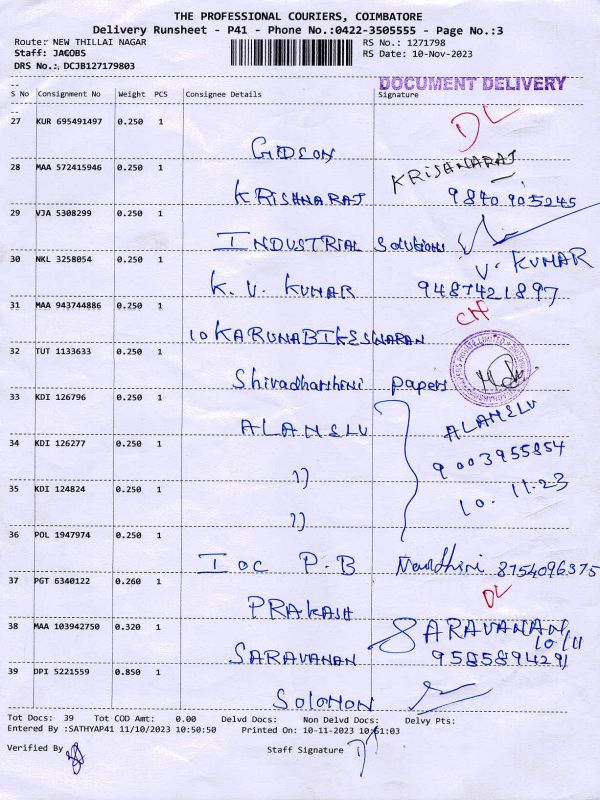 THE PROFESSIONAL COURIERS, COIMBATORE
Delivery Runsheet - P41 - Phone No.:0422-3505555 - Page No.:3
Route: NEW THILLAI NAGAR RS No.: 1271798
Staff: JACOBS RS Date: 10-Nov-2023
DRS No.: DCJB127179803
DOCUMENT DELIVERY
S No Consignment No Weight PCS Consignee Details Signature
27 KUR 695491497 0.250 1 GIDEON DL
28 MAA 572415946 0.250 1 KRISHNARAJ KRISHNARAJ
9840905245
29 VJA 5308299 0.250 1 INDUSTRIAL Solutions
30 NKL 3258054 0.250 1 K. V. KUMAR V. KUMAR
9487421897
31 MAA 943744886 0.250 1
32 TUT 1133633 0.250 1 Shivadharshini Papers
33 KDI 126796 0.250 1 ALAMELU ALAMELU
34 KDI 126277 0.250 1 ıı 9003955854
35 KDI 124824 0.250 1 ıı 10.11.23
36 POL 1947974 0.250 1 IOC P.B Nandhini 8754096375
37 PGT 6340122 0.260 1 PRAKASH DL
38 MAA 103942750 0.320 1 SARAVANAN SARAVANAN
10/11
9585894291
39 DPI 5221559 0.850 1 SOLOMON
Tot Docs: 39 Tot COD Amt: 0.00 Delvd Docs: Non Delvd Docs: Delvy Pts:
Entered By :SATHYAP41 11/10/2023 10:50:50 Printed On: 10-11-2023 10:51:03
Verified By Staff Signature